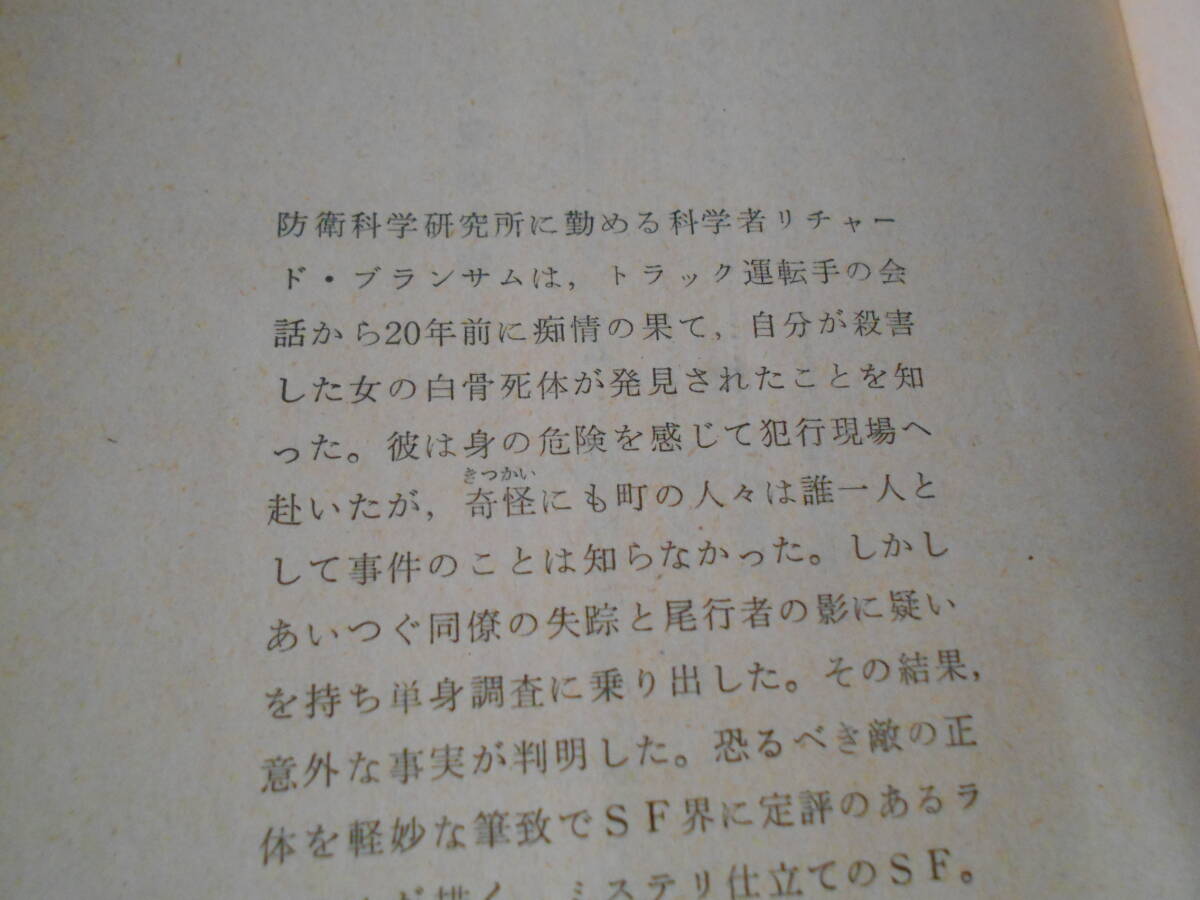 防衛科学研究所に勤める科学者リチャー
ド・ブランサムは，トラック運転手の会
話から20年前に痴情の果て，自分が殺害
した女の白骨死体が発見されたことを知
った。彼は身の危険を感じて犯行現場へ
きつかい
赴いたが，奇怪にも町の人々は誰一人と
して事件のことは知らなかった。しかし
あいつぐ同僚の失踪と尾行者の影に疑い
を持ち単身調査に乗り出した。その結果，
意外な事実が判明した。恐るべき敵の正
体を軽妙な筆致でＳＦ界に定評のあるラ
が描く，ミステリ仕立てのＳＦ。